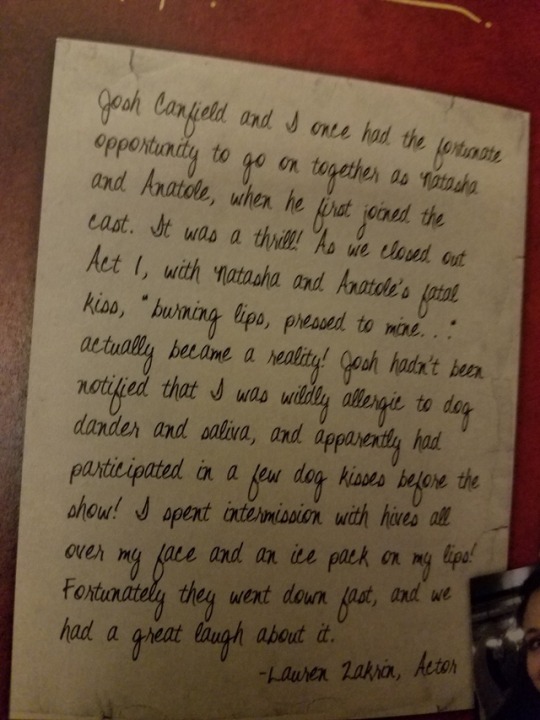 Josh Canfield and I once had the fortunate
opportunity to go on together as Natasha
and Anatole, when he first joined the
cast. It was a thrill! As we closed out
Act 1, with Natasha and Anatole's fatal
kiss, "burning lips, pressed to mine..."
actually became a reality! Josh hadn't been
notified that I was wildly allergic to dog
dander and saliva, and apparently had
participated in a few dog kisses before the
show! I spent intermission with hives all
over my face and an ice pack on my lips!
Fortunately they went down fast, and we
had a great laugh about it.
-Lauren Zakrin, Actor